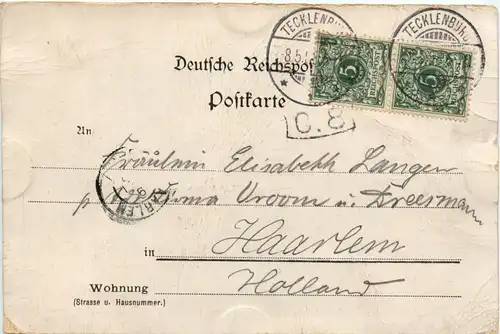 TECKLENBURG
TECKLENBURG
8.5
5
5
Deutsche Reichspos
Postkarte
C. 8
An
Fräulein Elisabeth Langen
p. Firma Vroom u. Dreesmann
HAARLEM
in Haarlem
Holland
Wohnung
(Strasse u. Hausnummer.)